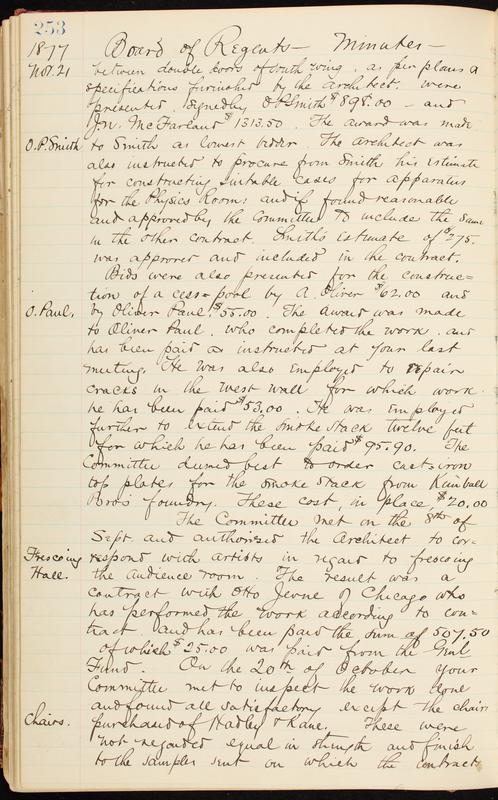 253
1877 Board of Regents — Minutes —
Nov. 21 between double doors of South wing, as per plans &
specifications furnished by the Architect, were
presented, signed by O.P. Smith $898.00 — and
Jn. McFarland $1313.50. The award was made
O.P. Smith to Smith as lowest bidder. The Architect was
also instructed to procure from Smith his estimate
for constructing suitable cases for apparatus
for the Physics Room: and if found reasonable
and approved by the Committee to include the same
in the other contract. Smith's estimate of $275.
was approved and included in the contract.
Bids were also presented for the construc=
tion of a cess-pool by A. Oliver $62.00 and
O. Paul, by Oliver Paul, $55.00. The award was made
to Oliver Paul, who completed the work, and
has been paid as instructed at your last
meeting. He was also Employed to repair
cracks in the west wall for which work
he has been paid $53.00. He was Employed
further to extend the smoke stack twelve feet
for which he has been paid $95.90. The
Committee deemed best to order cast-iron
top plates for the smoke stack from Kimball
Bros foundry. These cost, in place, $20.00
The Committee met on the 8th of
Sept. and authorized the Architect to cor=
Frescoing respond with artists in regard to frescoing
Hall. the audience room. The result was a
contract with Otto Jevne of Chicago who
has performed the work according to con=
tract and has been paid the sum of 507.50
of which $25.00 was paid from the Genl
Fund. On the 20th of October your
Committee met to inspect the work done
and found all satisfactory except the chairs
Chairs. purchased of Hadley & Kane. These were
not regarded equal in strength and finish
to the samples sent on which the contract